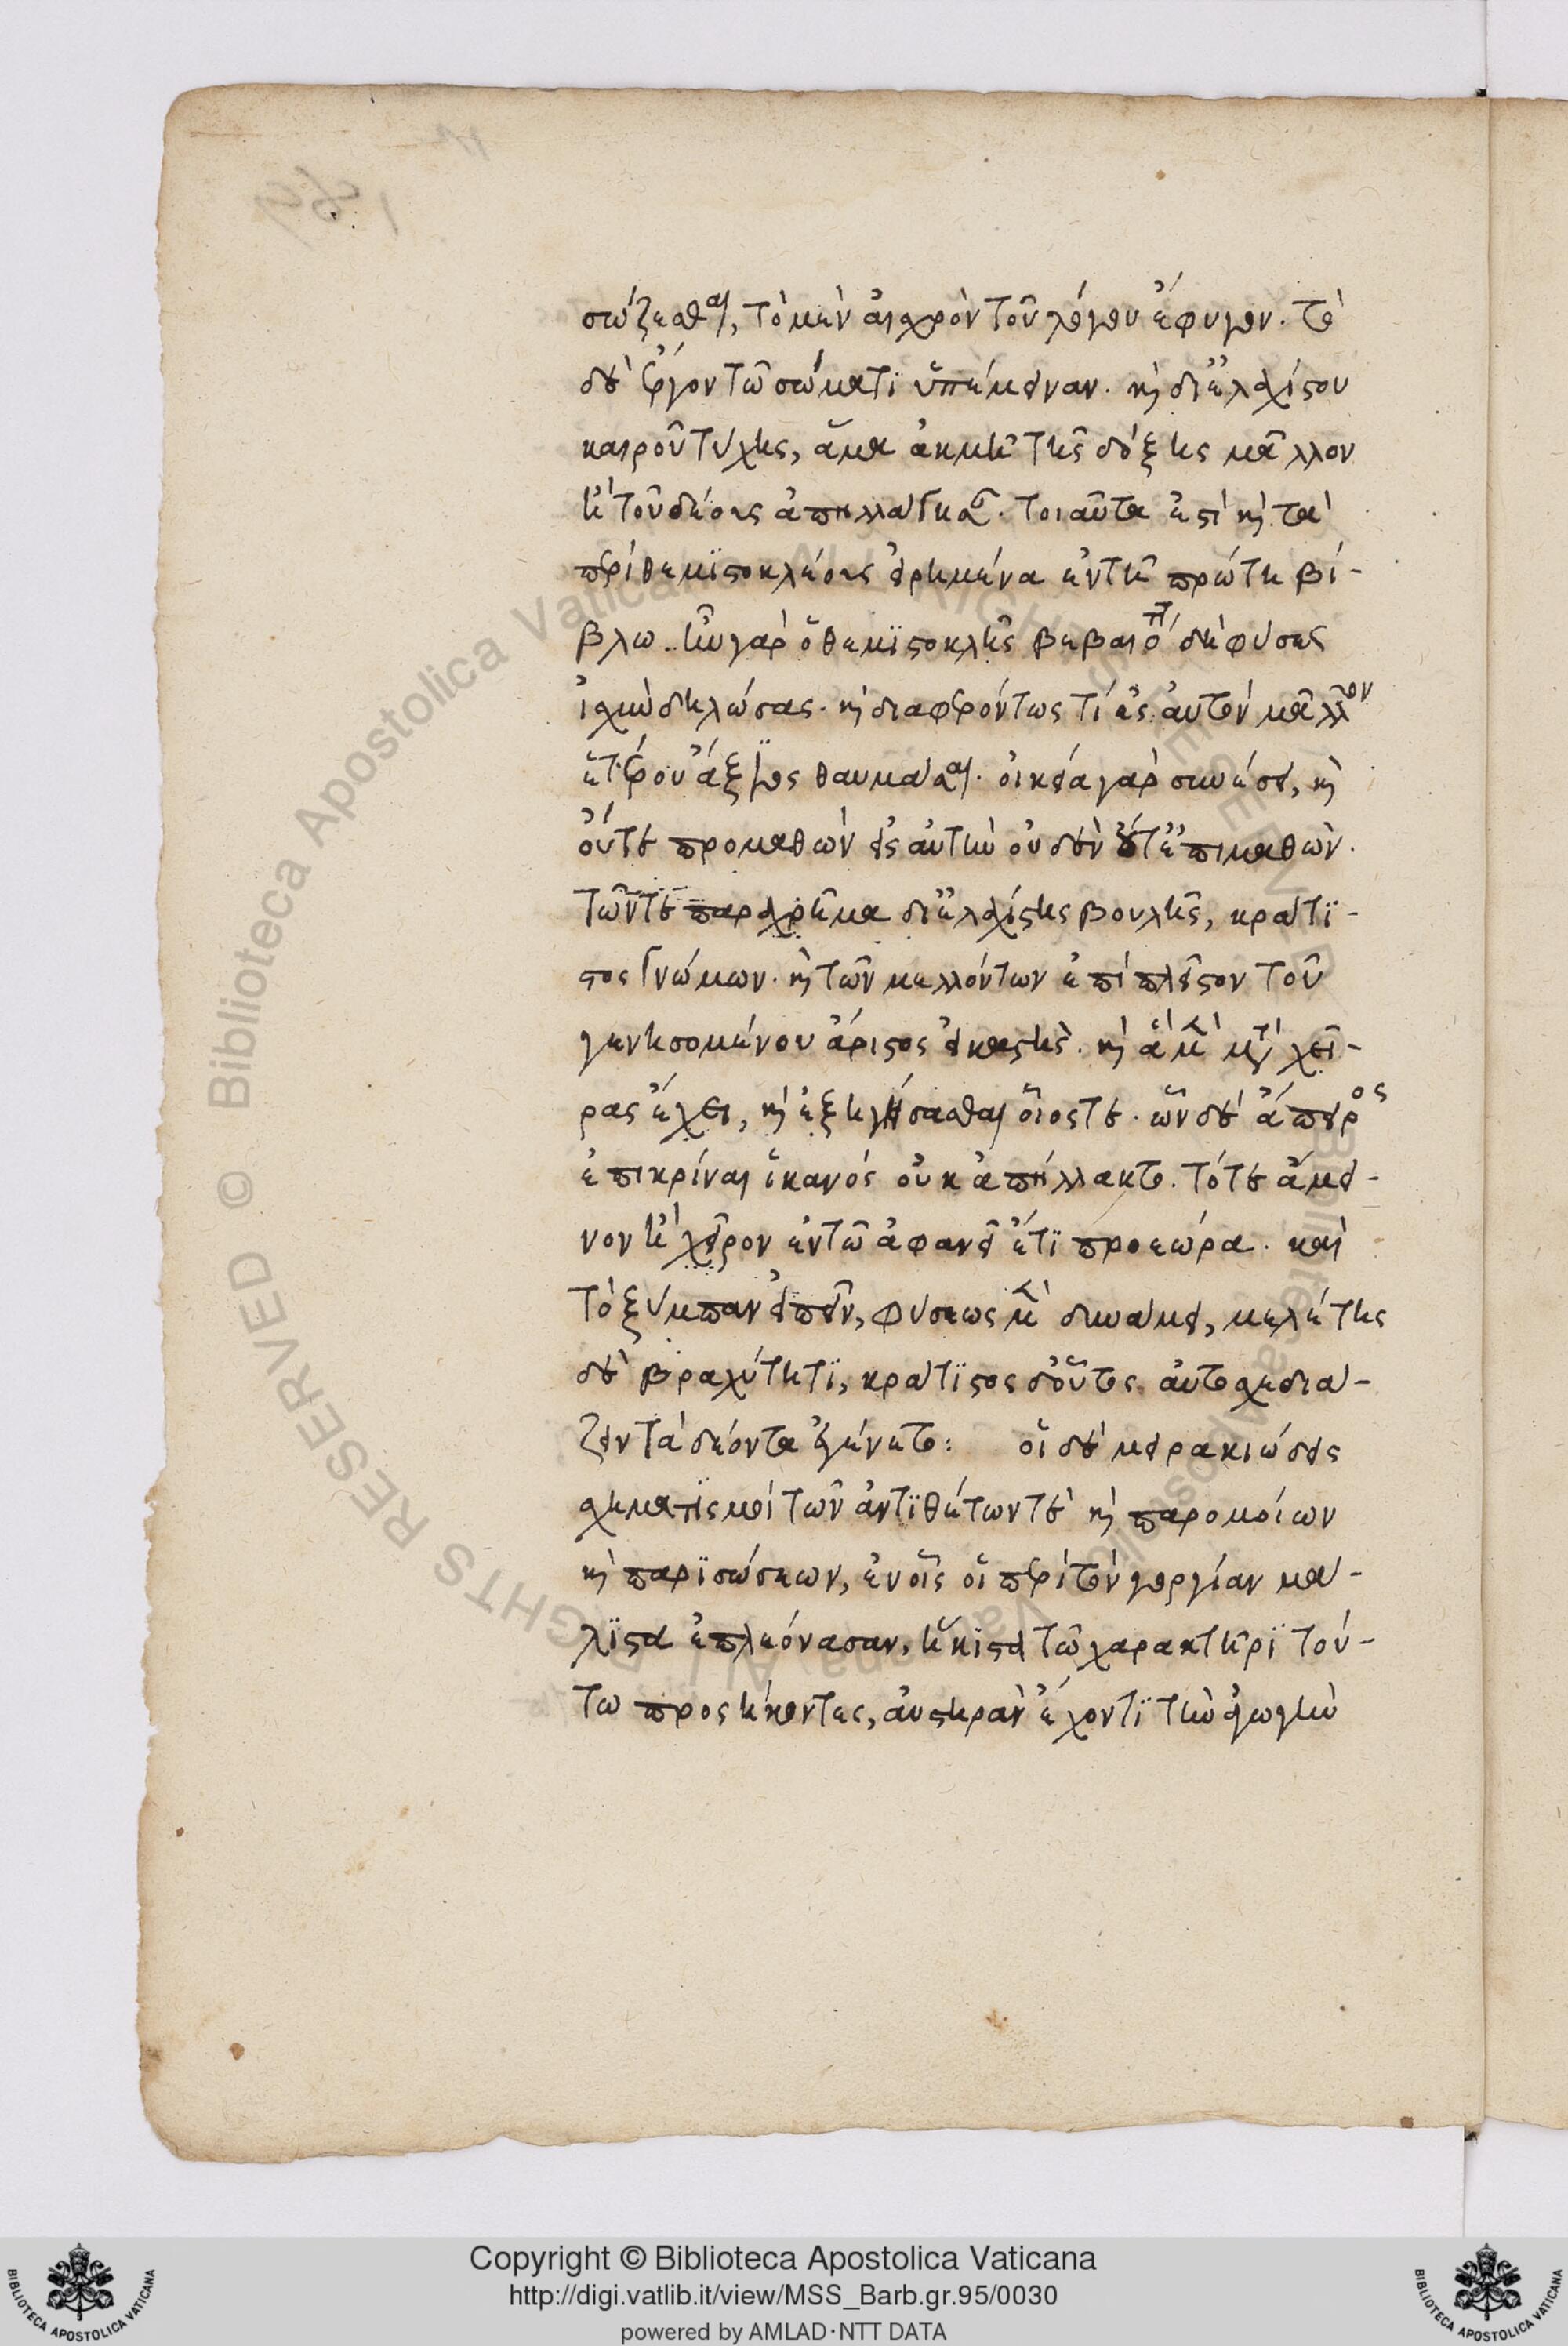 σώζεσθαι, τὸ μὲν αἰσχρὸν τοῦ λόγου ἔφυγον. τὸ
δὲ ἔργον τῶ σώματι ὑπέμειναν. καὶ δι' ἐλαχίστου
καιροῦ τύχης, ἅμα ἀκμῆ τῆς δόξης μᾶλλον
ἢ τοῦ δέους ἀπηλλάγησαν. τοιαῦτα ἐστὶ καὶ τὰ
περὶ θεμιστοκλέους εἰρημένα ἐν τῆ πρώτη βί-
βλω. ἦν γὰρ ὁ θεμιστοκλῆς βεβαιότατα δὲ φύσεως
ἰσχὺν δηλώσας. καὶ διαφερόντως τί ἐς αὐτὸν μᾶλλον
ἑτέρου ἄξιος θαυμάσαι. οἰκεία γὰρ συνέσει, καὶ
οὔτε προμαθὼν εἰς αὐτὴν οὐδὲν οὔτ' ἐπιμαθὼν.
τῶν τε παραχρῆμα δι' ἐλαχίστης βουλῆς, κράτι-
στος γνώμων. καὶ τῶν μελλόντων ἐπὶ πλεῖστον τοῦ
γενησομένου ἄριστος εἰκαστὴς. καὶ ἃ μὲν μετὰ χεῖ-
ρας ἔχει, καὶ ἐξηγήσασθαι οἷός τε. ὧν δὲ ἄπειρος
ἐπικρίναι ἱκανός οὐκ ἀπήλλακτο. τό τε ἄμει-
νον ἢ χεῖρον ἐν τῶ ἀφανεῖ ἔτι προεώρα. καὶ
τὸ ξύμπαν εἰπεῖν, φύσεως μὲν δυνάμει, μελέτης
δὲ βραχύτητι, κράτιστος δὴ οὗτος αὐτοσχεδιά-
ζειν τὰ δέοντα ἐγένετο: οἱ δὲ μειρακιώδεις
σχηματισμοὶ τῶν ἀντιθέτων τὲ καὶ παρομοίων
καὶ παρισώσεων, ἐν οἷς οἱ περὶ τὸν γοργίαν μά-
λιστα ἐπλεόνασαν, ἥκιστα τῶ χαρακτῆρι τού-
τω προσήκοντες, αὐστηρὰν ἔχοντι τὴν ἀγωγὴν
Copyright © Biblioteca Apostolica Vaticana
http://digi.vatlib.it/view/MSS_Barb.gr.95/0030
powered by AMLAD·NTT DATA